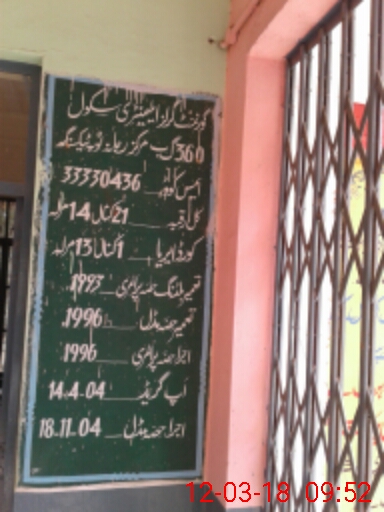 گورنمنٹ گرلز ایلیمنٹری سکول
360 گ ب مرکز رجانہ ٹوبہ ٹیک سنگھ
ایمس کوڈ ... 33330436
کل رقبہ ... 21 کنال 14 مرلہ
کورڈ ایریا ... 1 کنال 13 مرلہ
تعمیر بلڈنگ حصہ پرائمری ... 1993
تعمیر حصہ مڈل ... 1996
اجرا حصہ پرائمری ... 1996
اپ گریڈ ... 14.4.04
اجرا حصہ مڈل ... 18.11.04
12-03-18 09:52